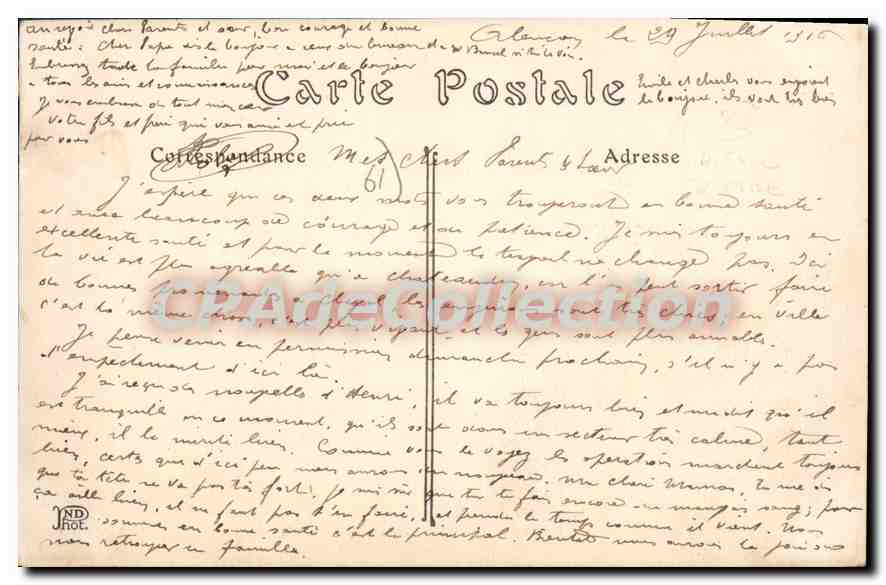 Alençon le 29 Juillet 1916
Carte Postale
Correspondance
Adresse
Mes chers Parents & Sœur
61
J'espère que ces deux mots vous trouveront en bonne santé
et avec beaucoup de courage et de patience. Je suis toujours en
excellente santé et pour le moment le temps ne change pas. Ici
la vie est plus agréable qu'à chateaudun, car l'on peut sortir faire
de bonnes promenades à cheval, les environs sont très chics, en ville
c'est la même chose, c'est plus et les gens sont plus aimables.
Je pense venir en permission dimanche prochain, s'il n'y a pas
d'empêchement d'ici là.
J'ai reçu des nouvelles d'Henri, il va toujours bien et me dit qu'il
est tranquille en ce moment, qu'ils sont dans un secteur très calme, tant
mieux, il le mérite bien. Comme vous le voyez les opérations marchent toujours
bien, certes que d'ici peu nous aurons du nouveau. Ma chère Maman, tu me dis
que ta tête ne va pas très fort. Je suis sûr que tu te fais encore du mauvais sang; pour
ça aille bien, il ne faut pas t'en faire, et prends le temps comme il vient. Nous
sommes en bonne santé c'est le principal. Bientôt nous aurons la joie de
nous retrouver en famille.
Au revoir chers Parents et sœur, bon courage et bonne
santé. Cher Papa dis le bonjour à ceux du bureau de
Embrassez toute la famille pour moi et le bonjour
à tous les amis et connaissances
Je vous embrasse de tout mon cœur
Votre fils et frère qui vous aime et prie
pour vous
Emile et Charles vous envoient
le bonjour, ils vont très bien
ND
Phot.
CPAdeCollection